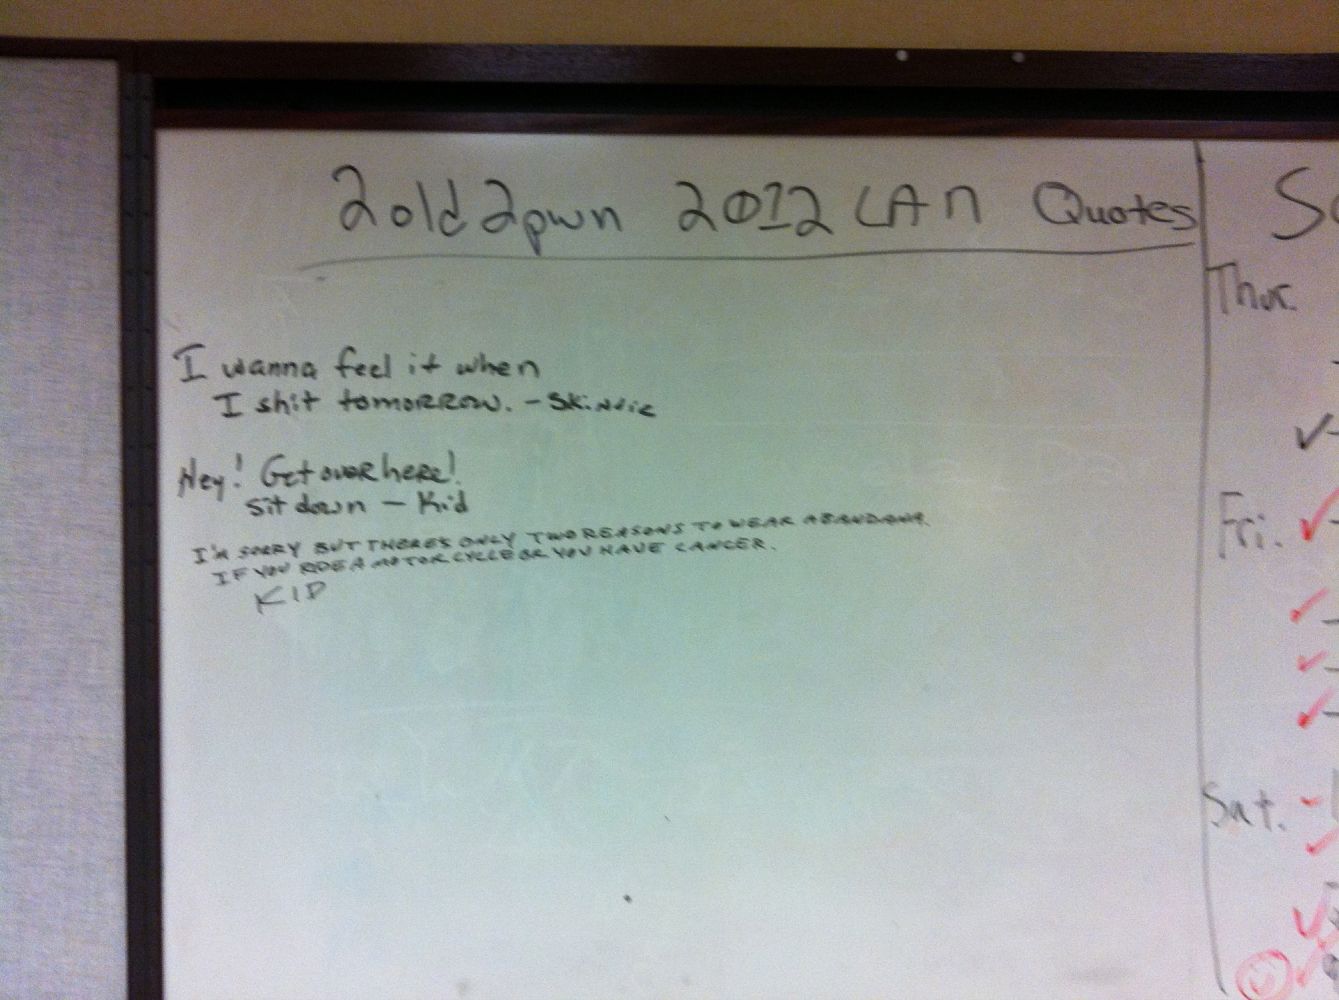 2old2pwn 2012 LAN Quotes
I wanna feel it when
I shit tomorrow. - Skinnie
Hey! Get over here!
sit down - Kid
I'M SORRY BUT THERE'S ONLY TWO REASONS TO WEAR A BANDANA.
IF YOU RIDE A MOTORCYCLE OR YOU HAVE CANCER.
KID
Thur.
Fri.
Sat.